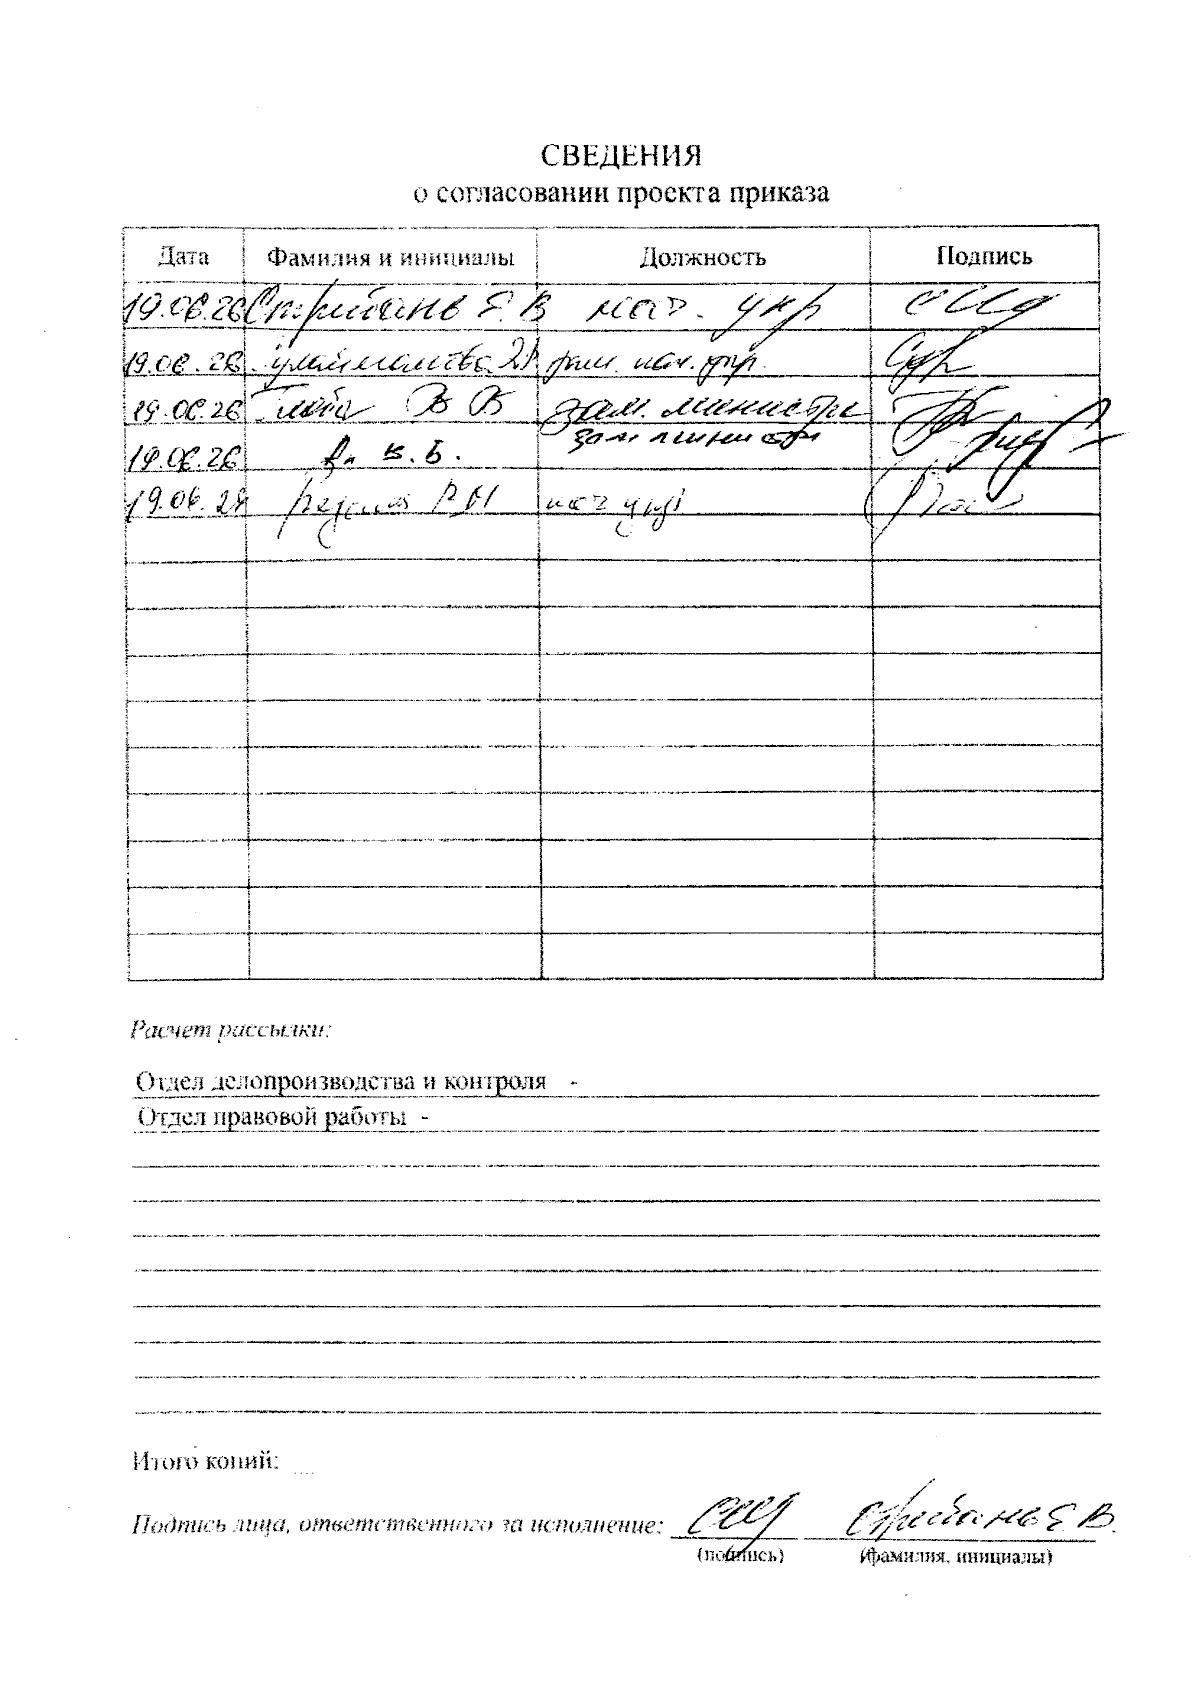 СВЕДЕНИЯ
о согласовании проекта приказа
Дата Фамилия и инициалы Должность Подпись
19.06.26 Стрибань Е.В нач. упр
19.06.26 зам. нач. упр.
19.06.26 Глоба В В зам. министра
19.06.26 К.Б. зам министра
19.06.26 нач упр
Расчет рассылки:
Отдел делопроизводства и контроля -
Отдел правовой работы -
Итого копий:
Подпись лица, ответственного за исполнение: Стрибань Е В.
(подпись) (фамилия, инициалы)